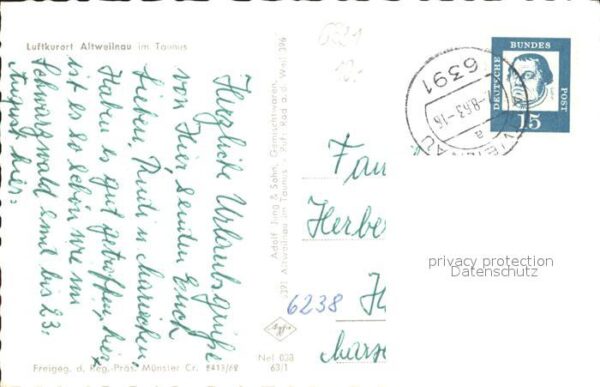 Luftkurort Altweilnau im Taunus
Herzliche Urlaubsgrüße
von Hier senden Euch
Lieben, Trudi u. Mariechen
Haben es gut getroffen, hier
ist es so schön wie im
Schwarzwald sind bis 23.
August hier.
Freigeg. d. Reg.-Präs. Münster Cr. 8413/62
Adolf Jung & Sohn, Gemischtwaren,
6391 Altweilnau im Taunus - Ruf: Rod a. d. Weil 396
Agfa
Nel 038
63/1
6391
-8.63-16
a
DEUTSCHE
BUNDES
POST
15
Fam
Herbe
6238
privacy protection
Datenschutz